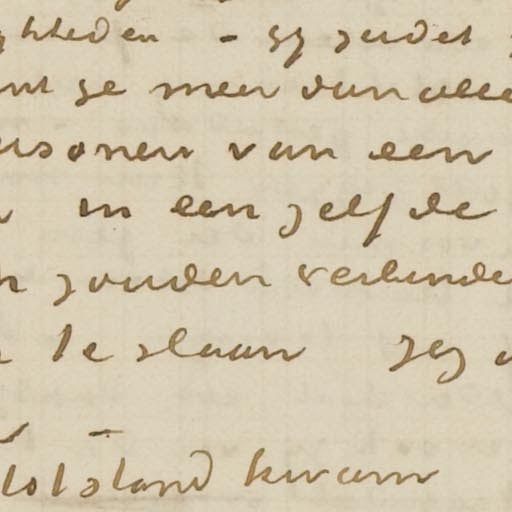 gheden - gy zudet
nt ge meer dan alle
rsonen van een
in een zelfde
n zouden verbinde
te slaan zeg
tot stand kwam